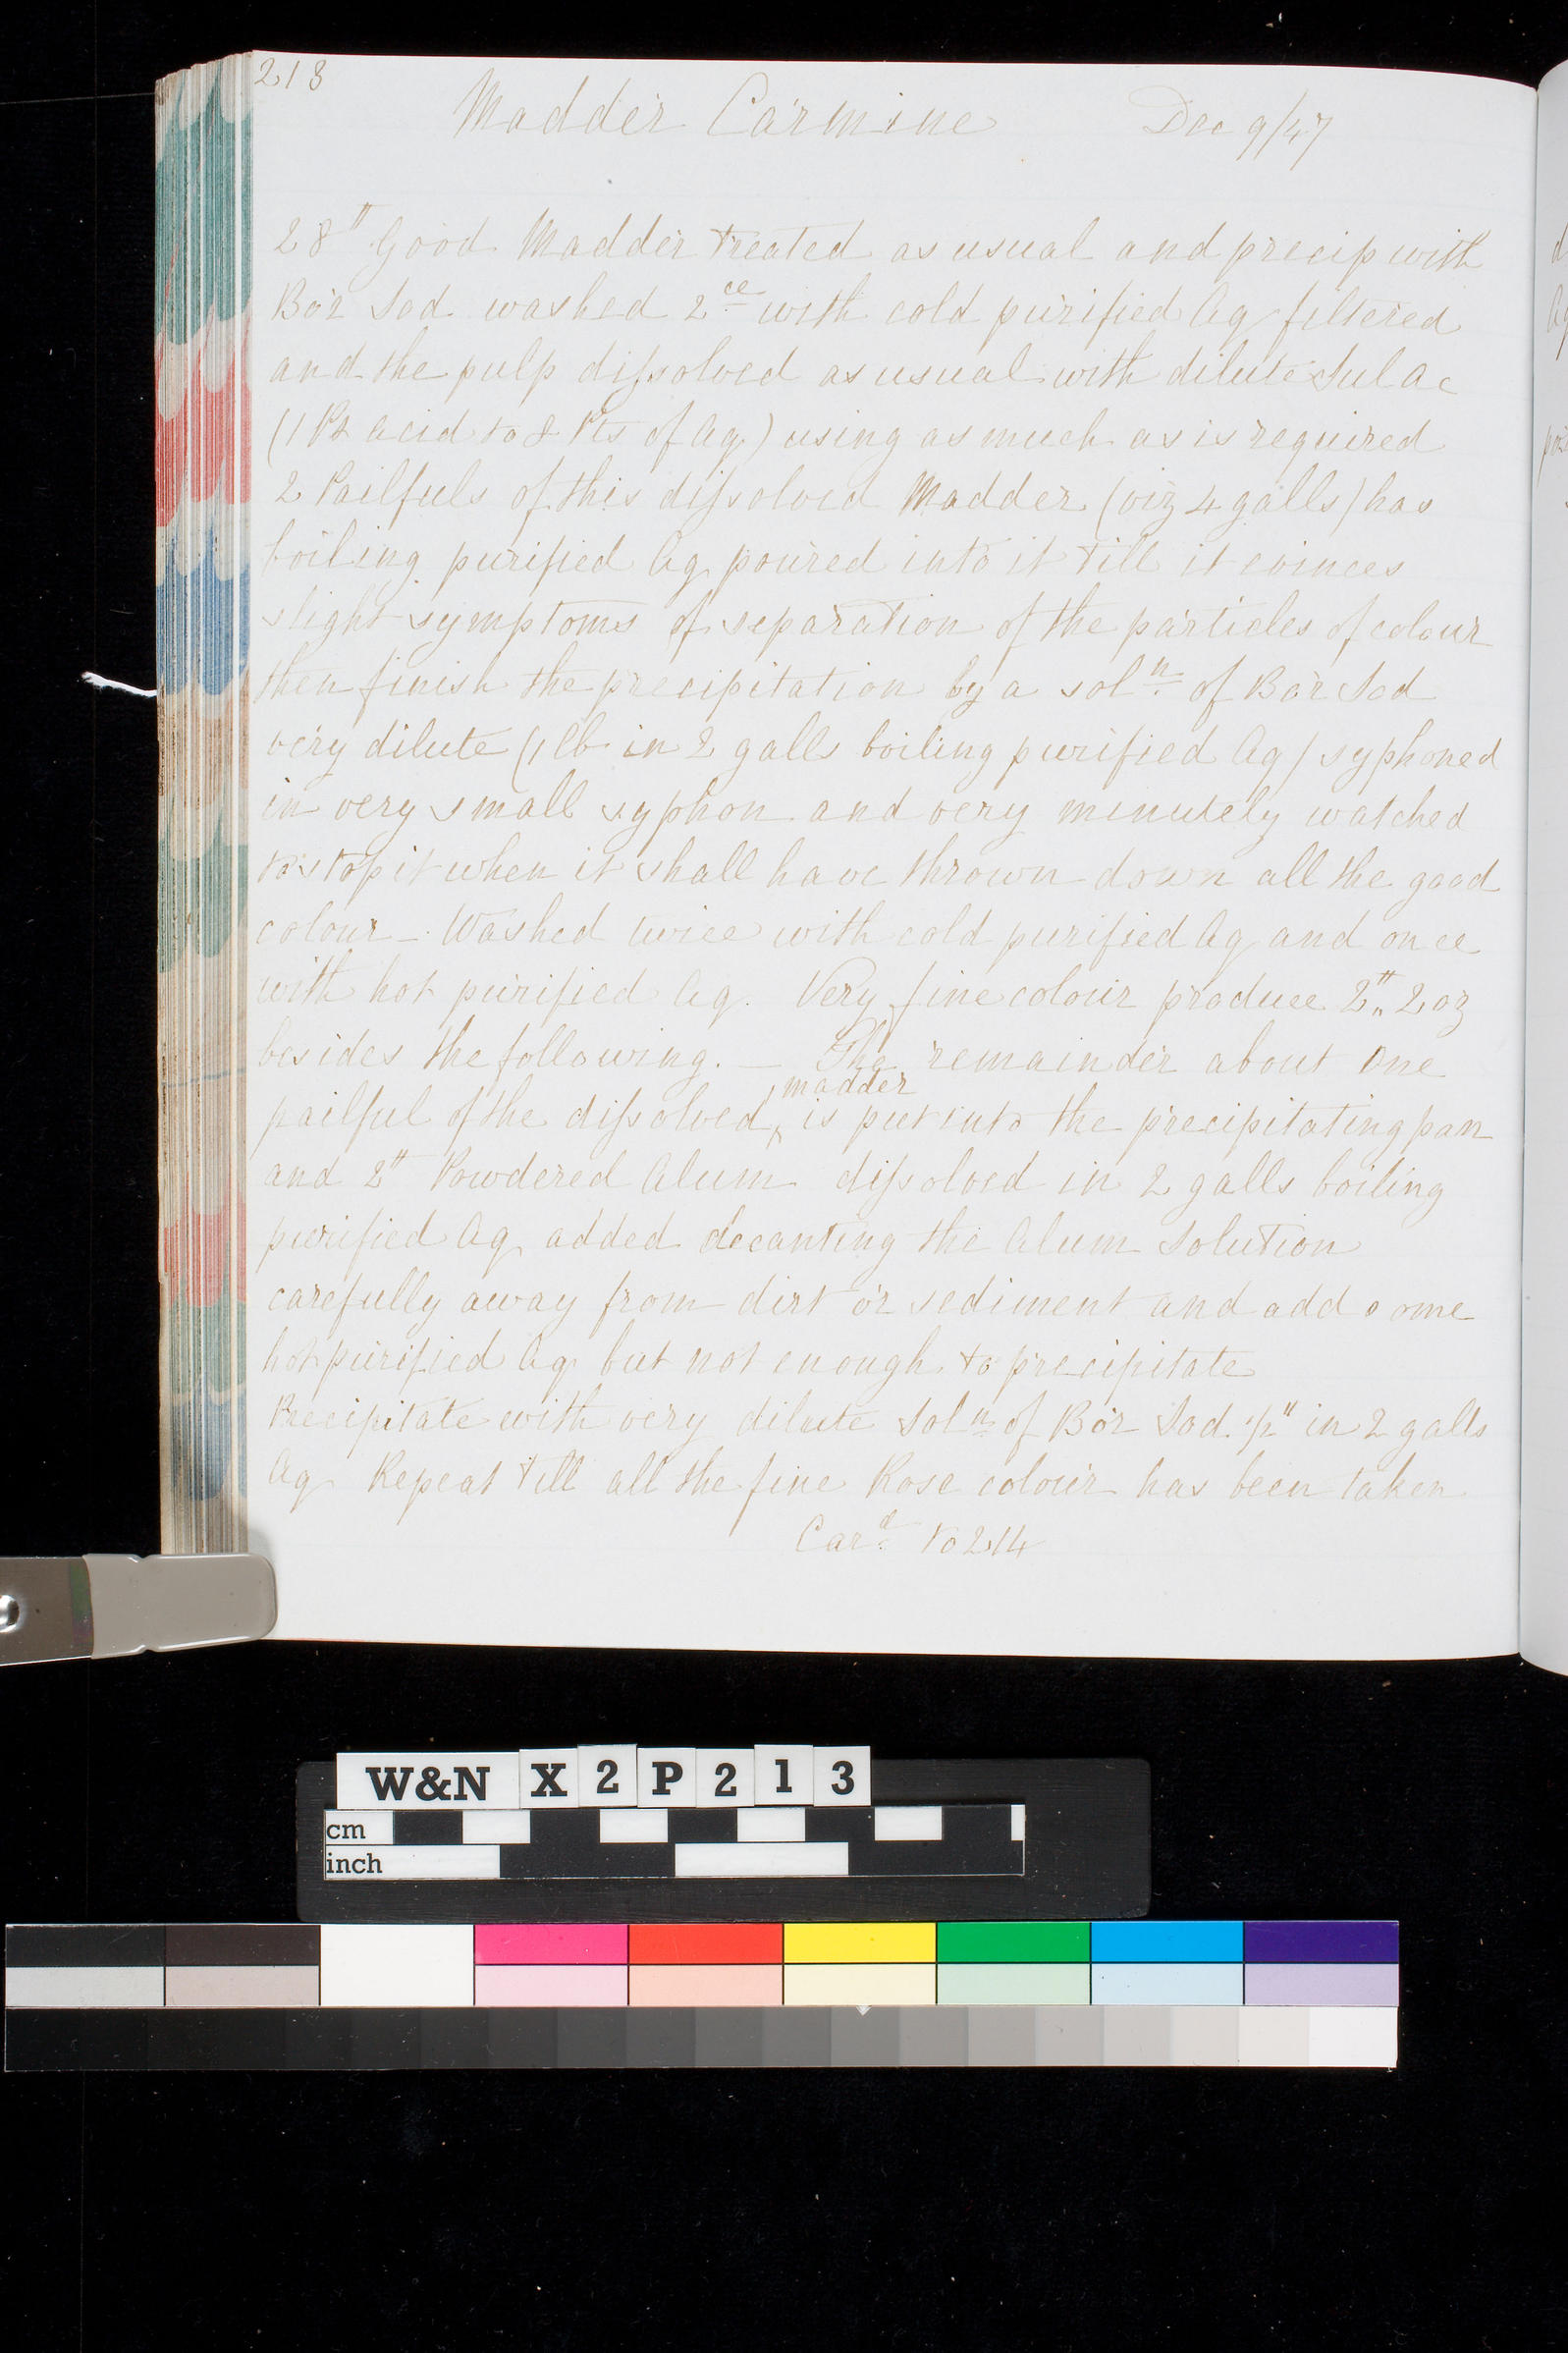 213
Madder Carmine Dec 9/47
28" Good Madder treated as usual and precip with
Bor Sod washed 2ce with cold purified Aq filtered
and the pulp dissolved as usual with dilute Sul Ac
(1 Pt acid to 8 Pts of Aq) using as much as is required
2 Pailfuls of this dissolved Madder (viz 4 galls) has
boiling purified Aq poured into it till it evinces
slight symptoms of separation of the particles of colour
then finish the precipitation by a soln of Bor Sod
very dilute (1 lb in 2 galls boiling purified Aq) syphoned
in very small syphon and very minutely watched
to stop it when it shall have thrown down all the good
colour - Washed twice with cold purified Aq and once
with hot purified Aq. Very fine colour produce 2",, 2 oz
besides the following. — The remainder about One
pailful of the dissolved madder is put into the precipitating pan
and 2" Powdered Alum dissolved in 2 galls boiling
purified Aq added decanting the Alum Solution
carefully away from dirt or sediment and add some
hot purified Aq but not enough to precipitate
Precipitate with very dilute Soln of Bor Sod. 1/2" in 2 galls
Aq Repeat till all the fine Rose colour has been taken
Card to 214
W&N X 2 P 2 1 3
cm
inch